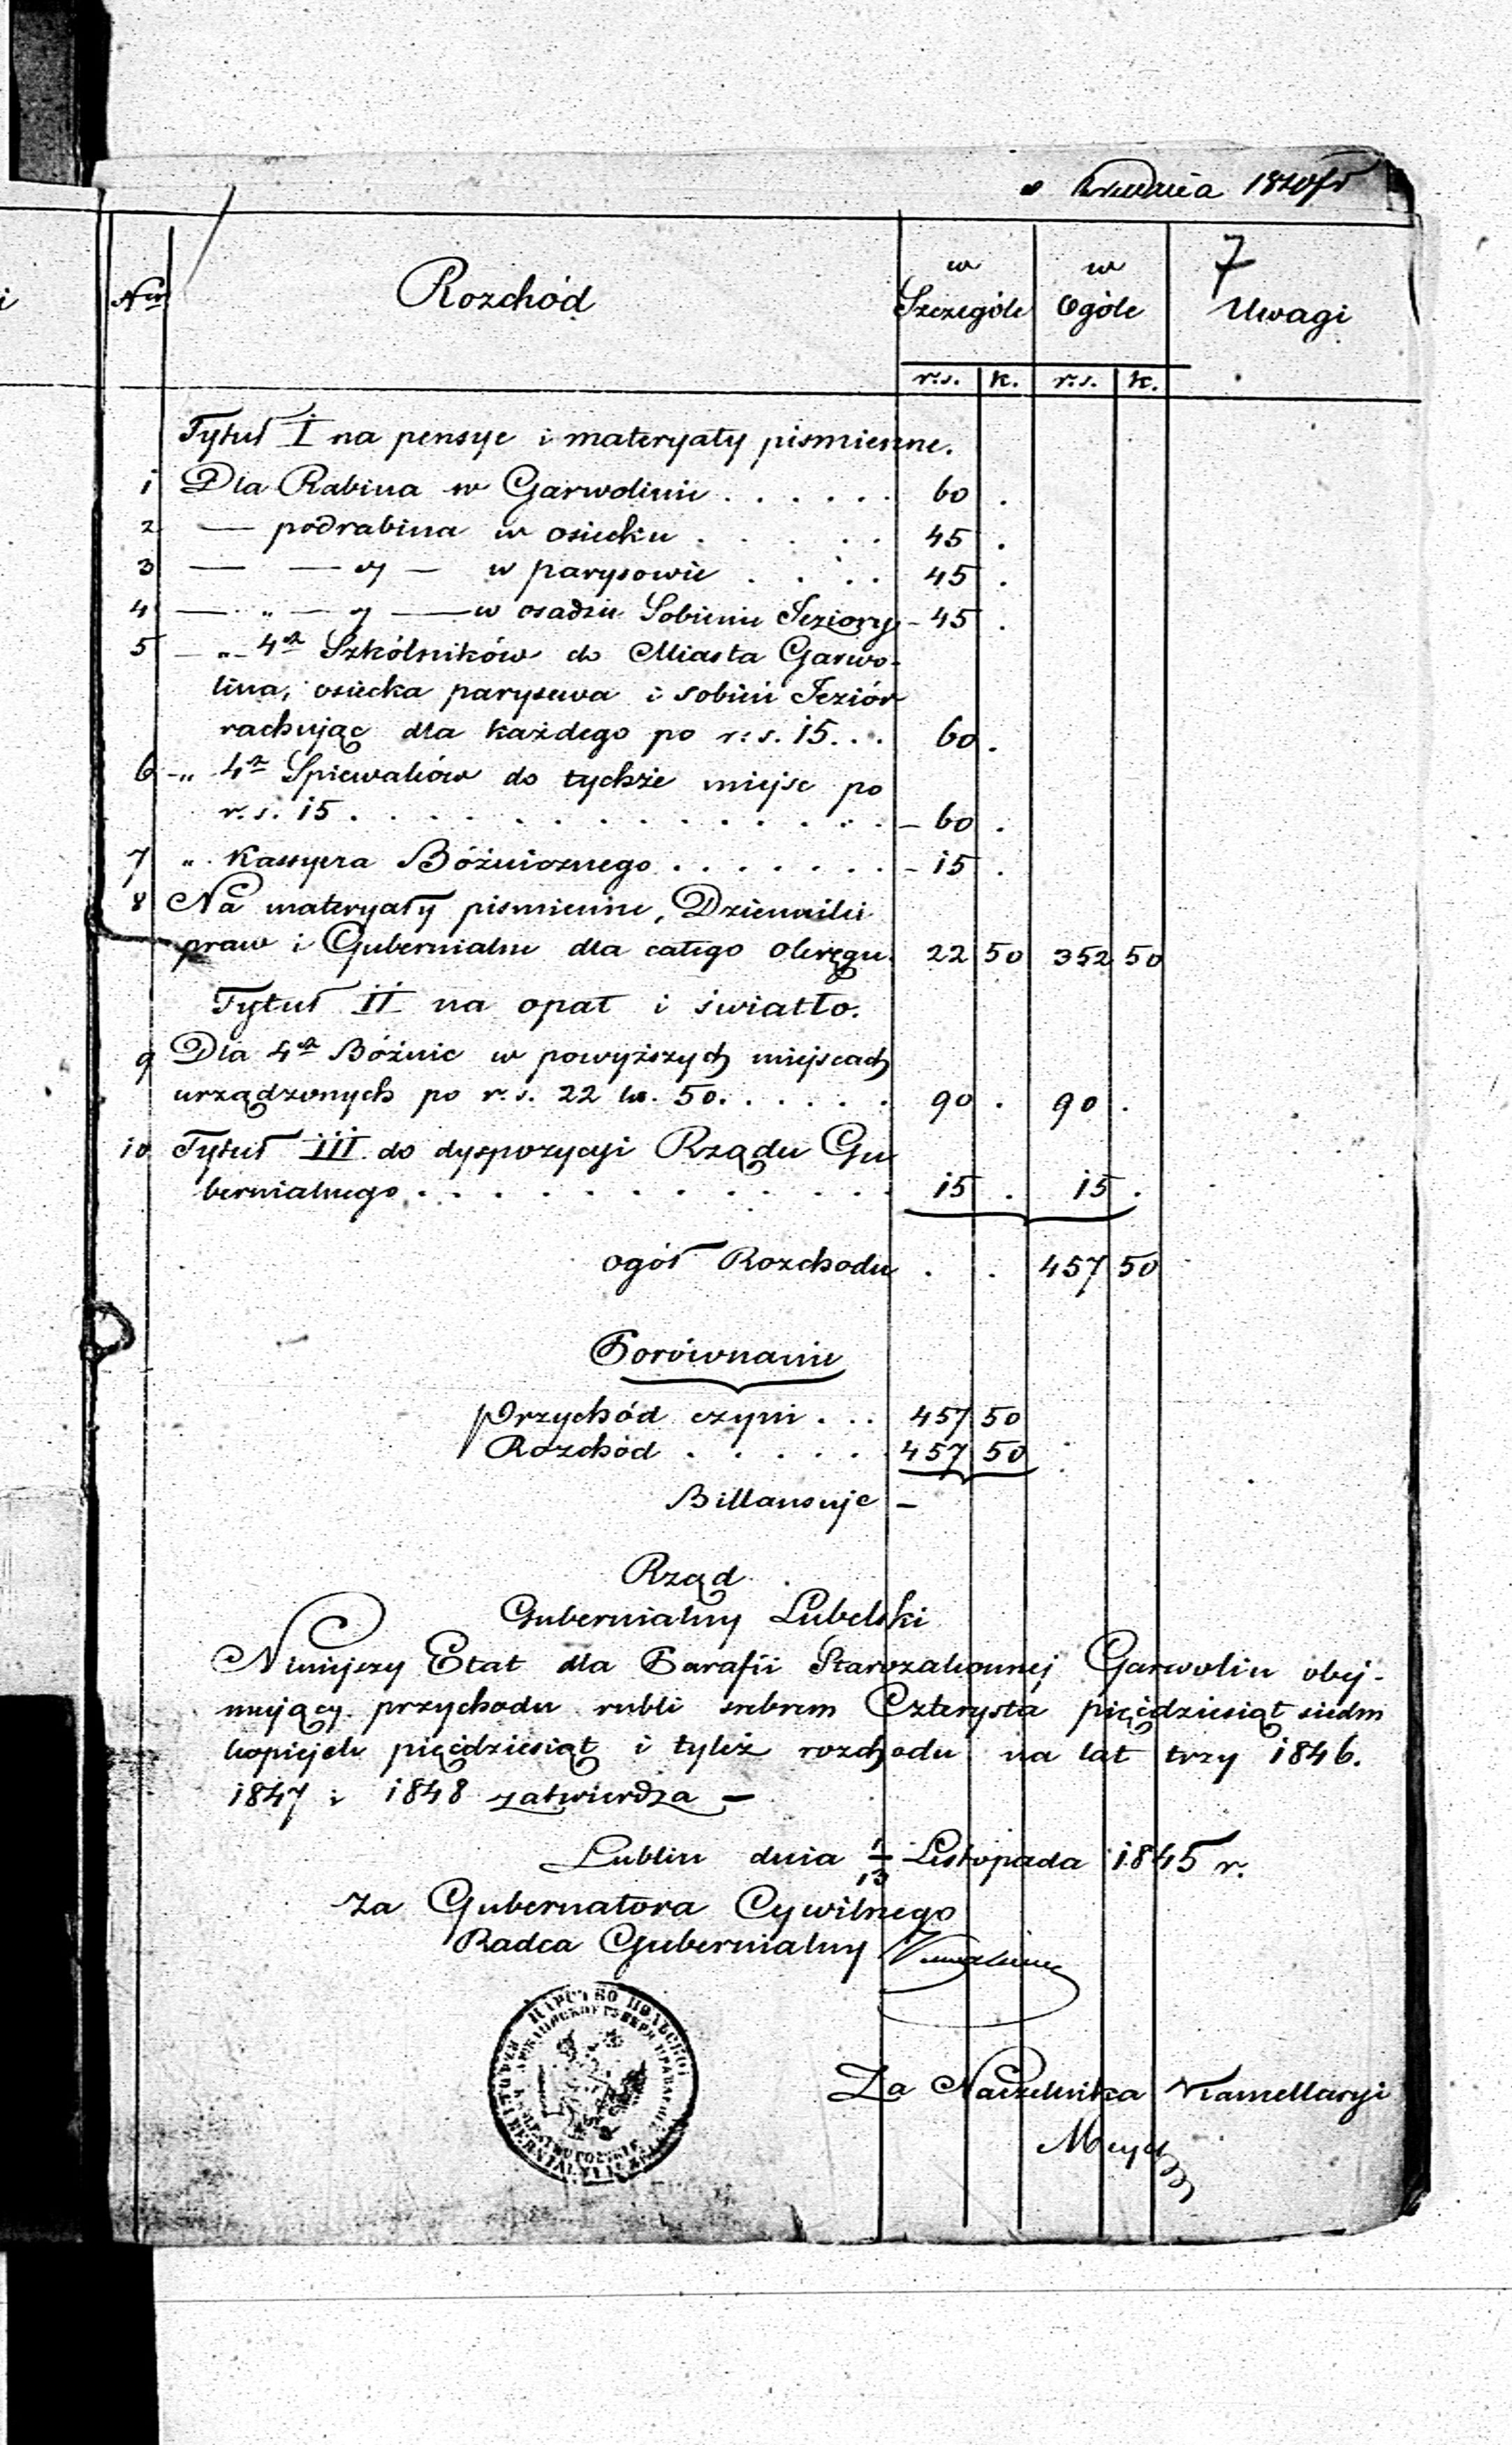 7
Nr Rozchód w Szczególe w Ogóle Uwagi
r:s. k. r:s. k.
Tytuł I na pensye i materyały pismienne.
1 Dla Rabina w Garwolinie . . . . . . 60 .
2 — podrabina w osiecku . . . . . 45 .
3 — — " — w parysowie . . . . 45 .
4 — " — " — w osadzie Sobienie Jeziory - 45 .
5 — " — 4ch Szkólników do Miasta Garwo-
lina, osiecka parysowa i sobień Jeziór
rachując dla każdego po r: s. 15. . . 60 .
6 - " 4ch Spiewaków do tychże miejsc po
r. s. 15 . . . . . . . . . . . . . . - 60 .
7 " Kassyera Bóżnicznego . . . . . . . - 15 .
8 Na materyały pismienne, Dzienniki
praw i Gubernialne dla całego okręgu. 22 50 352 50
Tytuł II na opał i światło.
9 Dla 4ch Bóżnic w powyższych miejscach
urządzonych po r. s. 22 k. 50. . . . . . 90 . 90 .
10 Tytuł III. do dyspozycyi Rządu Gu
bernialnego . . . . . . . . . . . . 15 . 15 .
ogół Rozchodu . . 457 50
Porównanie
Przychód czyni . . . 457 50
Rozchód . . . . . 457 50
Billansuje -
Rząd
Gubernialny Lubelski
Niniejszy Etat dla Parafii Starozakonnej Garwolin obej-
mujący przychodu rubli srebrem Czterysta pięćdziesiąt siedm
kopiejek pięćdziesiąt i tyleż rozchodu na lat trzy 1846.
1847 i 1848 zatwierdza —
Lublin dnia 1/13 Listopada 1845 r.
Za Gubernatora Cywilnego
Radca Gubernialny
Za Naczelnika Kancellaryi